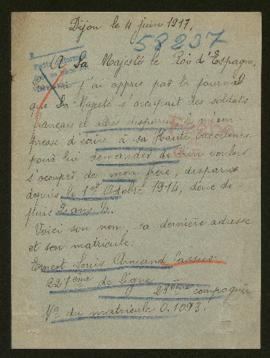 Dijon le 11 juin 1917.
58237
A Sa Majesté le Roi d'Espagne,
j'ai appris par le journal
que Sa Majesté s'occupait des soldats
français et alliés disparus
presse d'écrire à sa Haute Excellence
pour lui demander de bien vouloir
s'occuper de mon père, disparu
depuis le 1er Octobre 1914, donc de
plus 2 ans ½.
Voici son nom, sa dernière adresse
et son matricule.
Ernest Louis Armand
227ème de ligne
compagnie
No du matricule 0.1093.